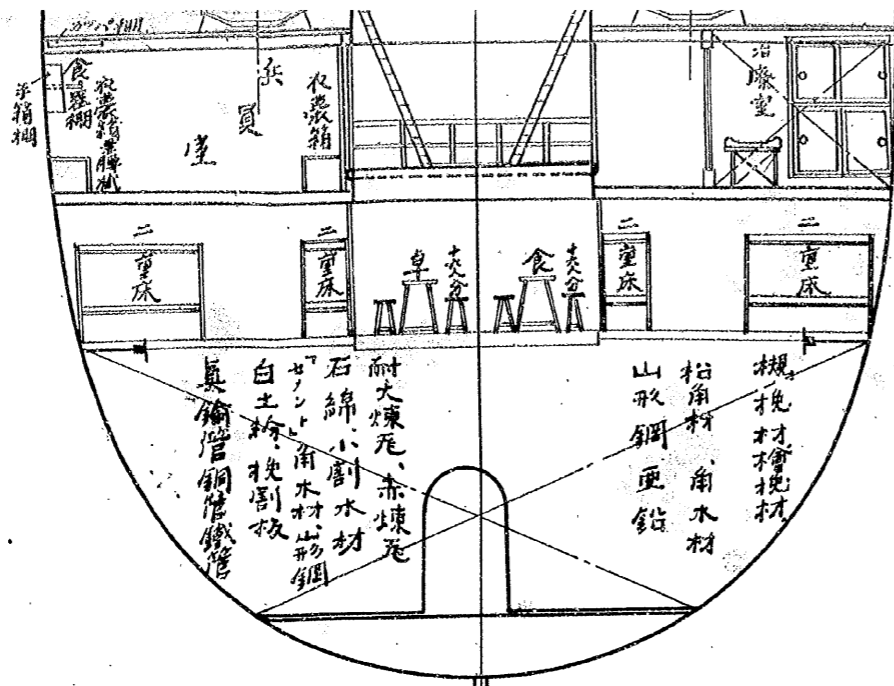 カッパ棚
兵員室
衣嚢箱
治療室
食器棚
衣嚢箱兼腰掛
手箱棚
二重床
二重床
卓
十六人分
食
十六人分
二重床
二重床
檜挽材
松角材、角木材
山形鋼亜鉛
耐火煉瓦、赤煉瓦
石綿、小割木材
セメント角木材、山形鋼
白土粉、挽割板
真鍮管銅管鐵管